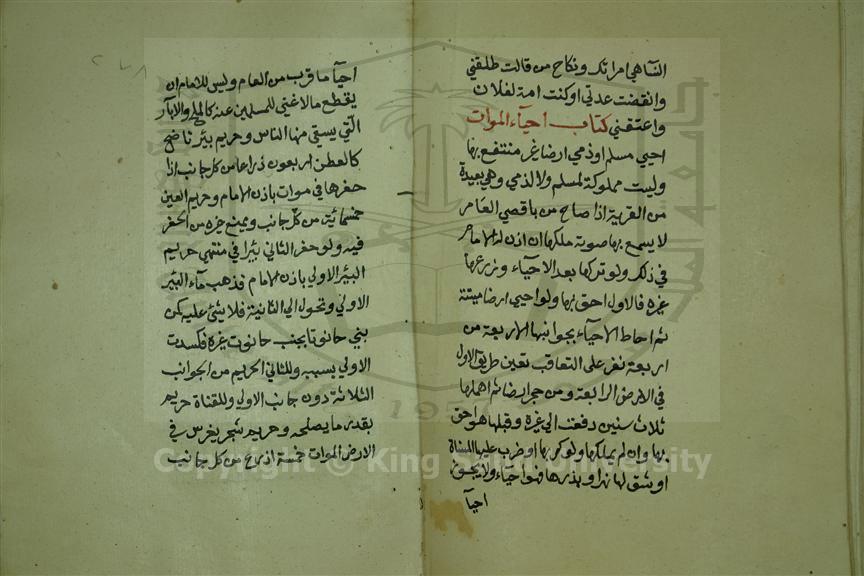 الشاهي امراتك ونكاح من قالت طلقني
وانقضت عدتي او كنت امة لفلان
واعتقني كتاب احيآء الموات
احيى مسلم او ذمي ارضا غير منتفع بها
وليست مملوكة لمسلم ولا لذمي وهي بعيدة
من القرية اذا صاح من باقصى العامر
لا يسمع بها صوته ملكها ان اذن له الامام
في ذلك ولو تركها بعد الاحيآء وزرعها
غيره فالاول احق بها ولو احيى ارضا ميتة
ثم احاط الاحيآء بجوانبها الاربعة من
اربعة نفر على التعاقب تعين طريق الاول
في الارض الرابعة ومن حجر ارضا ثم اهملها
ثلاث سنين دفعت الى غيره وقبلها هو احق
بها وان لم يملكها ولو كربها او ضرب عليها المسناة
او شق لها نهرا او بذرها فهو احيآء ولا يجوز
احيآ
احيآ ما قرب من العامر وليس للامام ان
يقطع ما لا غنى للمسلمين عنه كالملح والابآر
التي يستقي منها الناس وحريم بئر ناضح
كالعطن اربعون ذراعا من كل جانب اذا
حفرها في موات باذن الامام وحريم العين
خمسمائة من كل جانب ويمنع غيره من الحفر
فيه ولو حفر الثاني بئرا في منتهى حريم
البئر الاولى باذن الامام فذهب مآء البئر
الاولى وتحول الى الثانية فلا شئ عليه كمن
بنى حانوتا بجنب حانوت غيره فكسدت
الاولى بسببه وللثاني الحريم من الجوانب
الثلاثة دون جانب الاولى وللقناة حريم
بقدر ما يصلحه وحريم شجر يغرس في
الارض الموات خمسة اذرع من كل جانب
1957
Copyright © King Saud University